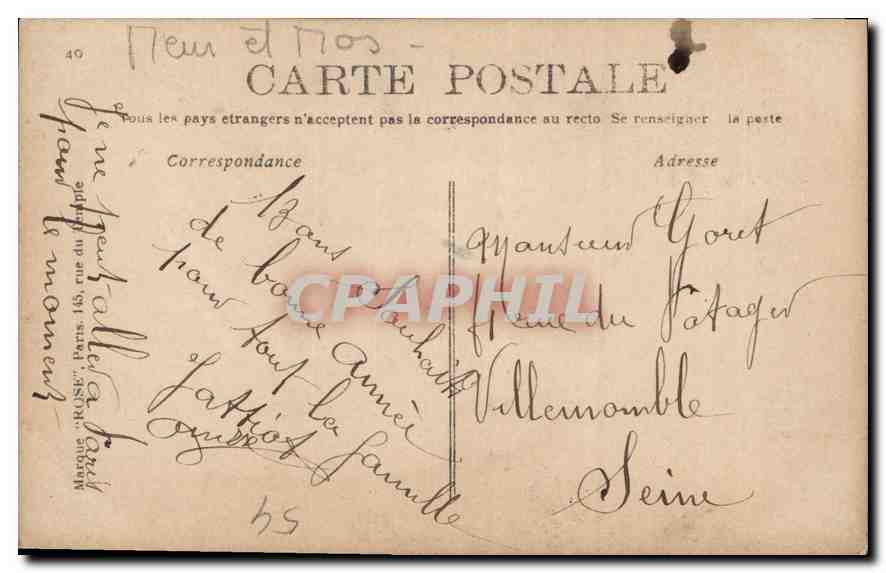 40
Meur et Mos -
CARTE POSTALE
Tous les pays etrangers n'acceptent pas la correspondance au recto Se renseigner la poste
Correspondance
Adresse
Bons Souhaits
de bonne année
pour tout la famille
Gattiot
Monsieur Goret
Rue du Potager
Villemomble
Seine
Je ne peut aller a Paris
pour le moment
Marque "ROSE", Paris. 145, rue du Temple
54
CPAPHIL